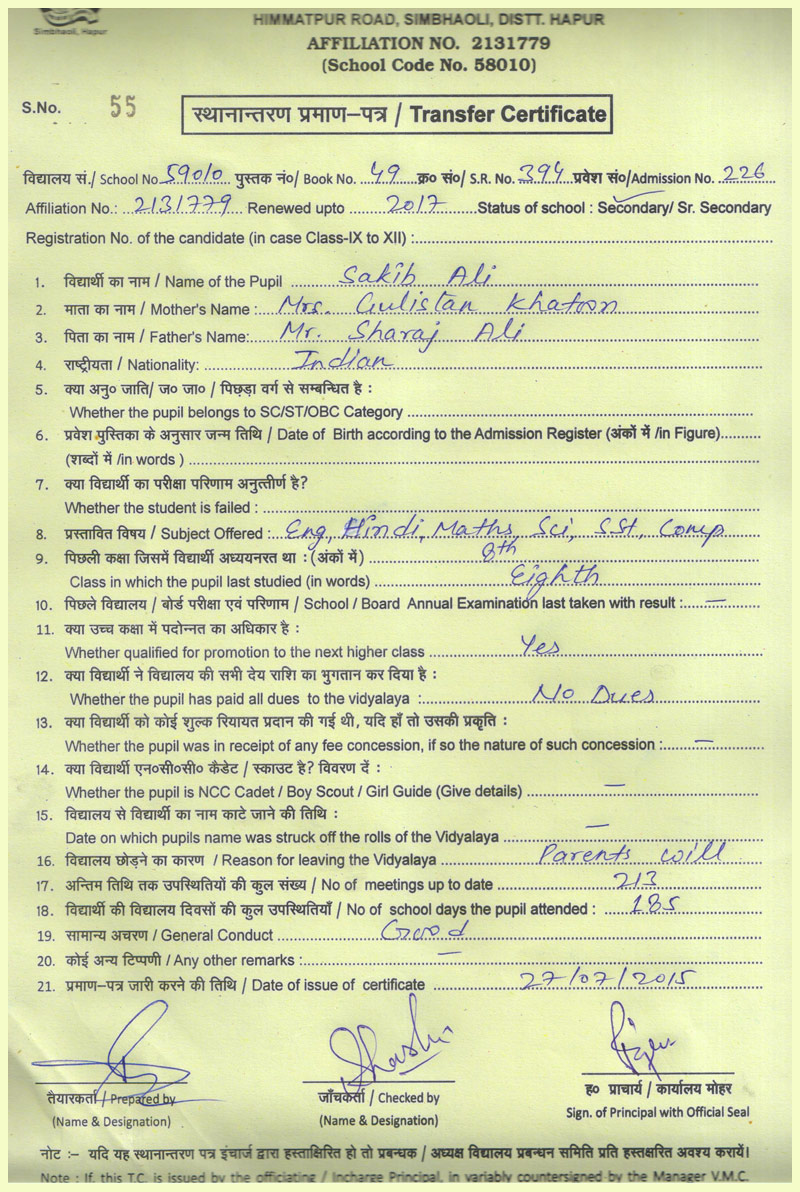 Simbhaoli, Hapur
HIMMATPUR ROAD, SIMBHAOLI, DISTT. HAPUR
AFFILIATION NO. 2131779
(School Code No. 58010)
S.No. 55
स्थानान्तरण प्रमाण–पत्र / Transfer Certificate
विद्यालय सं./ School No 59010 पुस्तक नं०/ Book No. 49 क्र० सं०/ S.R. No. 394 प्रवेश सं०/Admission No. 226
Affiliation No.: 2131779 Renewed upto 2017 Status of school : Secondary/ Sr. Secondary
Registration No. of the candidate (in case Class-IX to XII) :
1. विद्यार्थी का नाम / Name of the Pupil Sakib Ali
2. माता का नाम / Mother's Name : Mrs. Gulistan Khatoon
3. पिता का नाम / Father's Name: Mr. Sharaj Ali
4. राष्ट्रीयता / Nationality: Indian
5. क्या अनु० जाति/ ज० जा० / पिछड़ा वर्ग से सम्बन्धित है :
Whether the pupil belongs to SC/ST/OBC Category
6. प्रवेश पुस्तिका के अनुसार जन्म तिथि / Date of Birth according to the Admission Register (अंकों में /in Figure)
(शब्दों में /in words )
7. क्या विद्यार्थी का परीक्षा परिणाम अनुत्तीर्ण है?
Whether the student is failed :
8. प्रस्तावित विषय / Subject Offered : Eng, Hindi, Maths, Sci, SSt, Comp
9. पिछली कक्षा जिसमें विद्यार्थी अध्ययनरत था : (अंकों में ) 8th
Class in which the pupil last studied (in words) Eighth
10. पिछले विद्यालय / बोर्ड परीक्षा एवं परिणाम / School / Board Annual Examination last taken with result : —
11. क्या उच्च कक्षा में पदोन्नत का अधिकार है :
Whether qualified for promotion to the next higher class Yes
12. क्या विद्यार्थी ने विद्यालय की सभी देय राशि का भुगतान कर दिया है :
Whether the pupil has paid all dues to the vidyalaya : No Dues
13. क्या विद्यार्थी को कोई शुल्क रियायत प्रदान की गई थी, यदि हाँ तो उसकी प्रकृति :
Whether the pupil was in receipt of any fee concession, if so the nature of such concession : —
14. क्या विद्यार्थी एन०सी०सी० कैडेट / स्काउट है? विवरण दें :
Whether the pupil is NCC Cadet / Boy Scout / Girl Guide (Give details) —
15. विद्यालय से विद्यार्थी का नाम काटे जाने की तिथि :
Date on which pupils name was struck off the rolls of the Vidyalaya —
16. विद्यालय छोड़ने का कारण / Reason for leaving the Vidyalaya Parents will
17. अन्तिम तिथि तक उपस्थितियों की कुल संख्य / No of meetings up to date 213
18. विद्यार्थी की विद्यालय दिवसों की कुल उपस्थितियाँ / No of school days the pupil attended : 185
19. सामान्य अचरण / General Conduct Good
20. कोई अन्य टिप्पणी / Any other remarks : —
21. प्रमाण–पत्र जारी करने की तिथि / Date of issue of certificate 27/07/2015
तैयारकर्ता / Prepared by जाँचकर्ता / Checked by ह० प्राचार्य / कार्यालय मोहर
(Name & Designation) (Name & Designation) Sign. of Principal with Official Seal
नोट :– यदि यह स्थानान्तरण पत्र इंचार्ज द्वारा हस्ताक्षरित हो तो प्रबन्धक / अध्यक्ष विद्यालय प्रबन्धन समिति प्रति हस्तक्षरित अवश्य करायें।
Note : If, this T.C. is issued by the officiating / Incharge Principal, in variably countersigned by the Manager V.M.C.